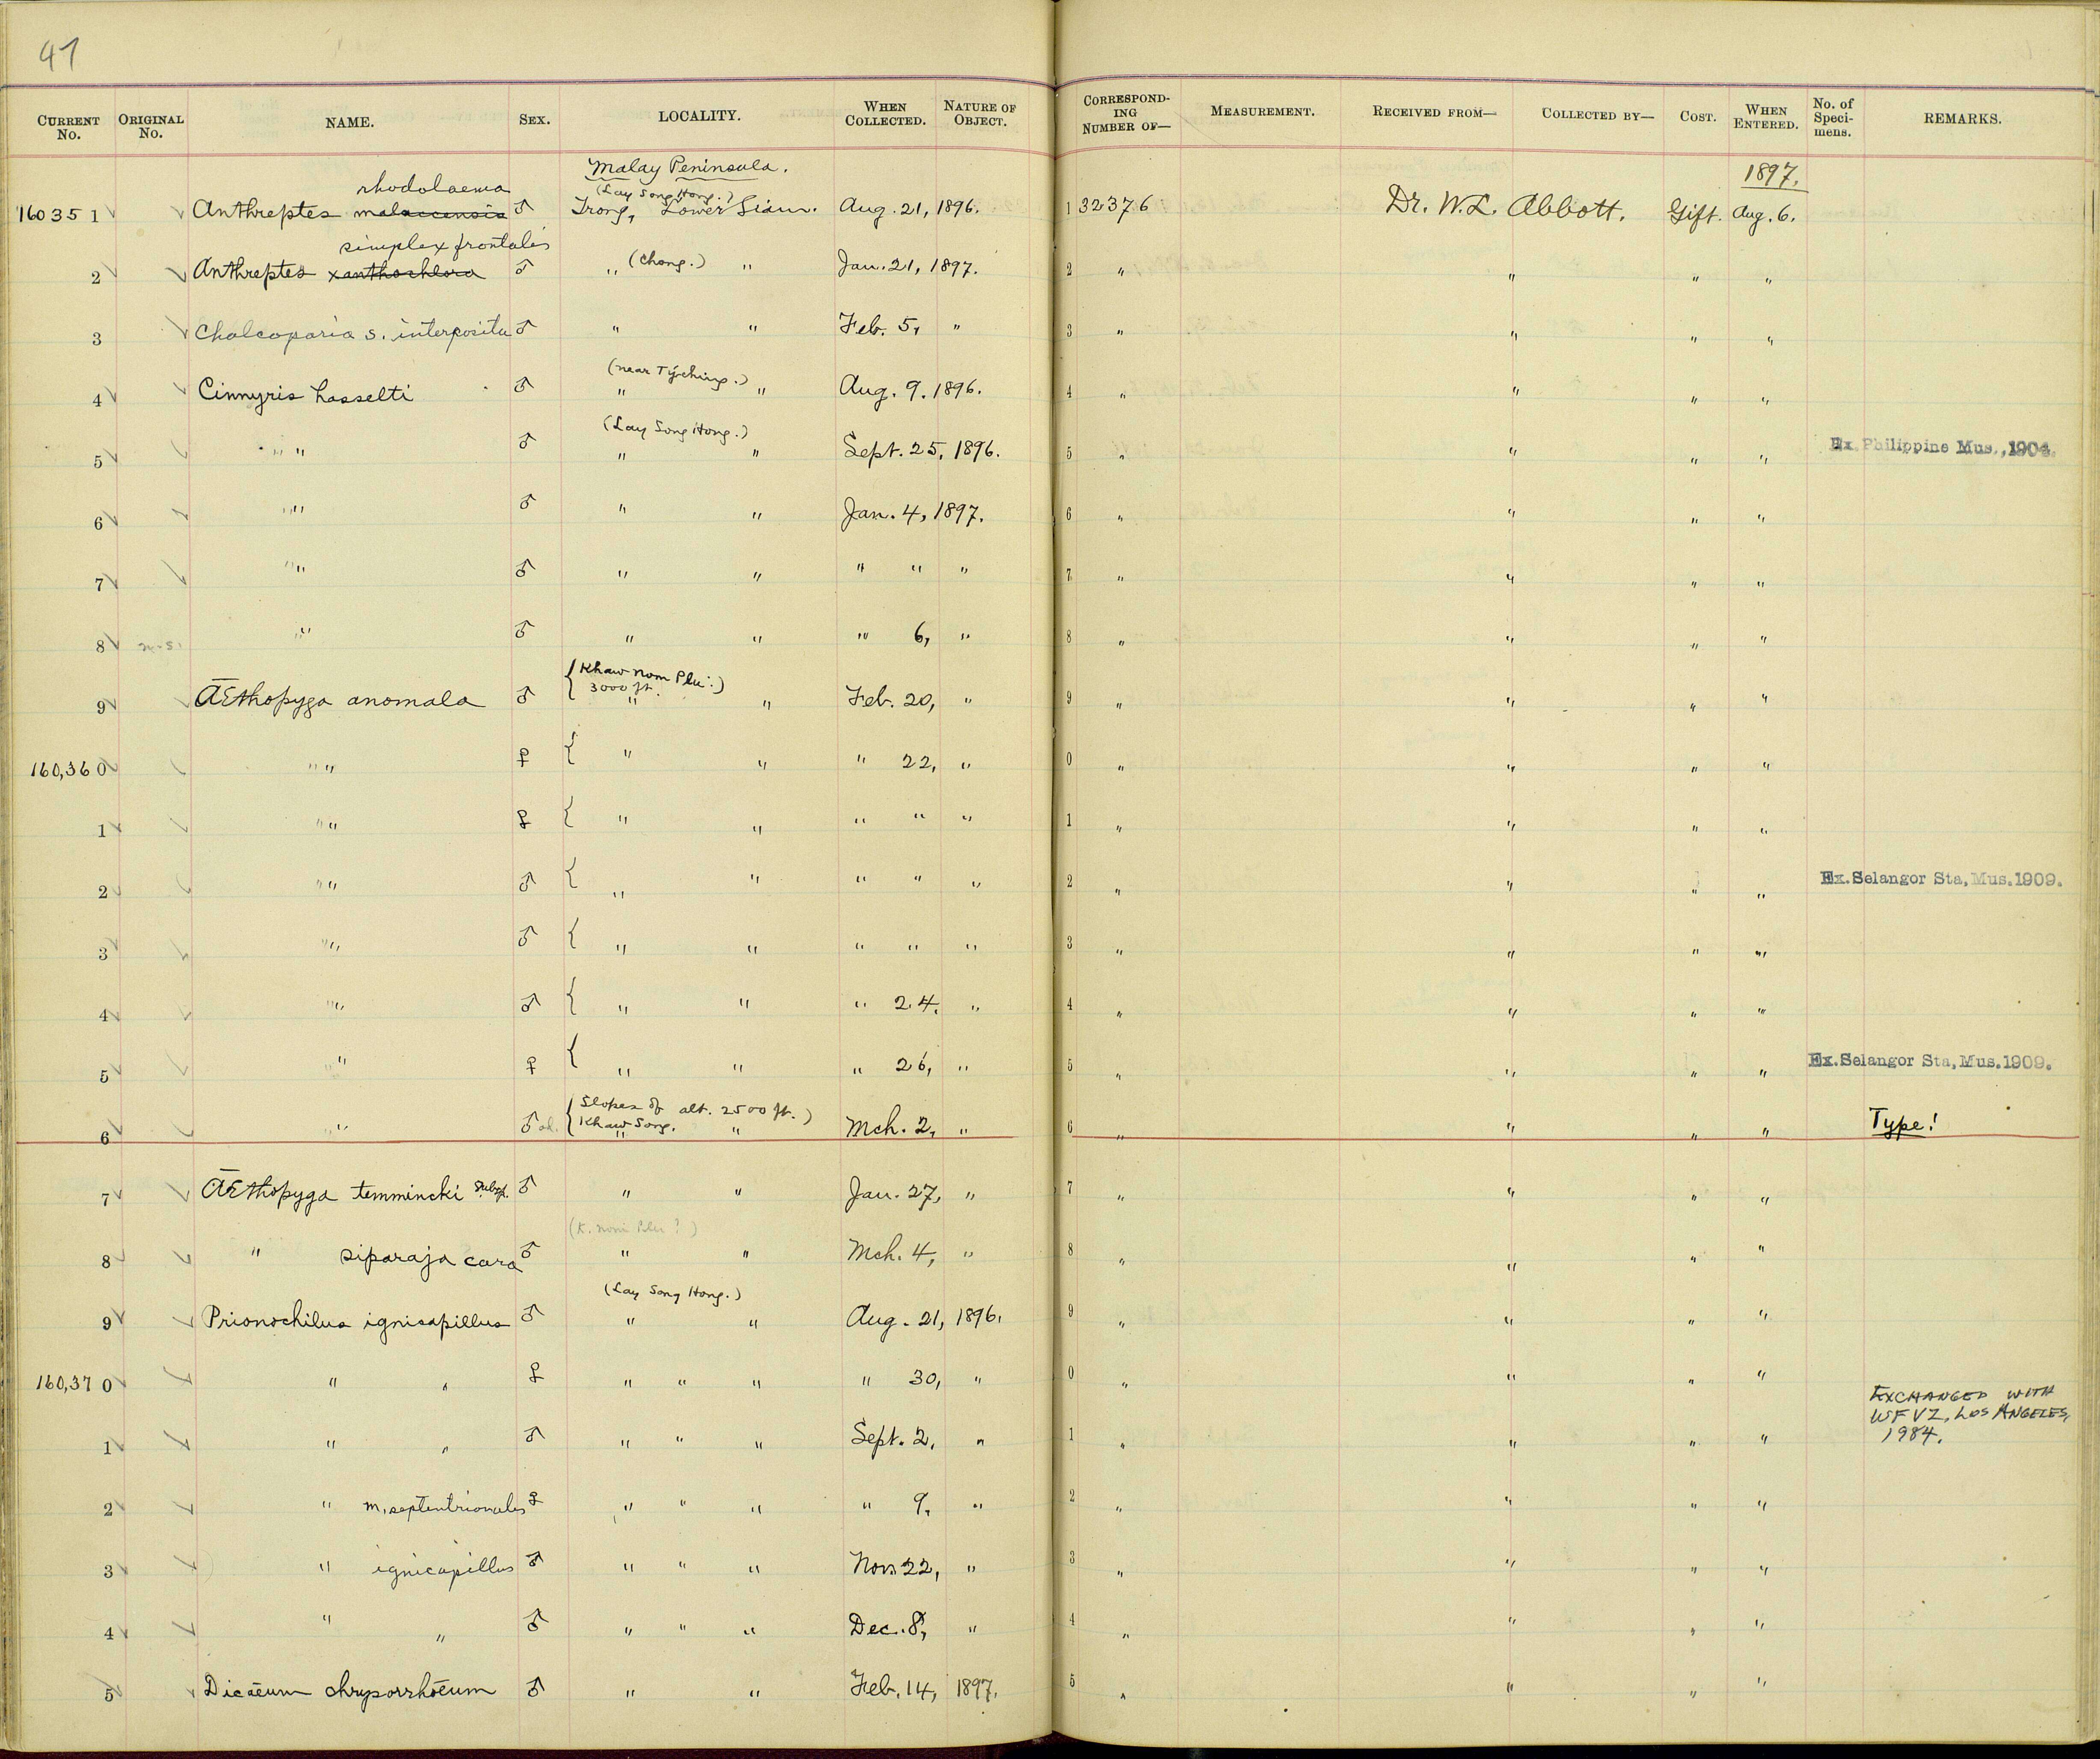 47
CURRENT No. ORIGINAL No. NAME. SEX. LOCALITY. WHEN COLLECTED. NATURE OF OBJECT. CORRESPONDING NUMBER OF— MEASUREMENT. RECEIVED FROM— COLLECTED BY— COST. WHEN ENTERED. No. of Specimens. REMARKS.
Malay Peninsula. 1897.
rhodolaema (Lay Song Hong.)
160351 Anthreptes malaccensis ♂ Trong, Lower Siam. Aug. 21, 1896. 1 32376 Dr. W. L. Abbott. Gift. Aug. 6.
simplex frontalis
2 Anthreptes xanthochlora ♂ " (Chong.) " Jan. 21, 1897. 2 " " " "
3 Chalcoparia s. interposita ♂ " " Feb. 5, " 3 " " " "
4 Cinnyris hasselti ♂ (near Tyching.) " " Aug. 9. 1896. 4 " " " "
5 " " ♂ (Lay Song Hong.) " " Sept. 25, 1896. 5 " " " " Ex. Philippine Mus., 1904.
6 " " ♂ " " Jan. 4, 1897. 6 " " " "
7 " " ♂ " " " " " 7 " " " "
8 " " ♂ " " " 6, " 8 " " " "
9 Æthopyga anomala ♂ { Khaw Nom Plu. 3000 ft. ) " " Feb. 20, " 9 " " " "
160,360 " " ♀ { " " " 22, " 0 " " " "
1 " " ♀ { " " " " " 1 " " " "
2 " " ♂ { " " " " " 2 " " " " Ex. Selangor Sta, Mus. 1909.
3 " " ♂ { " " " " " 3 " " " "
4 " " ♂ { " " " 24, " 4 " " " "
5 " " ♀ { " " " 26, " 5 " " " " Ex. Selangor Sta, Mus. 1909.
6 " " ♂ ad. { Slopes of Khaw Song. alt. 2500 ft. ) " " Mch. 2, " 6 " " " " Type!
7 Æthopyga temmincki subsp. ♂ " " Jan. 27, " 7 " " " "
8 " siparaja cara ♂ (K. Nom Plu ?) " " Mch. 4, " 8 " " " "
9 Prionochilus ignicapillus ♂ (Lay Song Hong.) " " Aug. 21, 1896. 9 " " " "
160,370 " " ♀ " " " " 30, " 0 " " " "
EXCHANGED WITH
WFVZ, LOS ANGELES,
1984.
1 " " ♂ " " " Sept. 2, " 1 " " " "
2 " m. septentrionalis ♀ " " " " 9, " 2 " " " "
3 " ignicapillus ♂ " " " Nov. 22, " 3 " " " "
4 " " ♂ " " " Dec. 8, " 4 " " " "
5 Dicæum chrysorrhœum ♂ " " Feb. 14, 1897. 5 " " " "